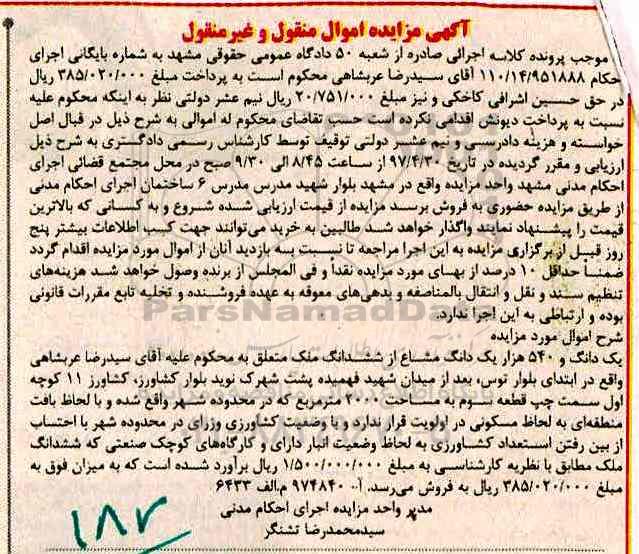 آگهی مزایده اموال منقول و غیرمنقول
موجب پرونده کلاسه اجرائی صادره از شعبه ۵۰ دادگاه عمومی حقوقی مشهد به شماره بایگانی اجرای
احکام ۱۱۰/۱۴/۹۵۱۸۸۸ آقای سیدرضا عربشاهی محکوم است به پرداخت مبلغ ۳۸۵/۰۲۰/۰۰۰ ریال
در حق حسین اشرافی کاخکی و نیز مبلغ ۲۰/۷۵۱/۰۰۰ ریال نیم عشر دولتی نظر به اینکه محکوم علیه
نسبت به پرداخت دیونش اقدامی نکرده است حسب تقاضای محکوم له اموالی به شرح ذیل در قبال اصل
خواسته و هزینه دادرسی و نیم عشر دولتی توقیف توسط کارشناس رسمی دادگستری به شرح ذیل
ارزیابی و مقرر گردیده در تاریخ ۹۷/۴/۳۰ از ساعت ۸/۴۵ الی ۹/۳۰ صبح در محل مجتمع قضائی اجرای
احکام مدنی مشهد واحد مزایده واقع در مشهد بلوار شهید مدرس مدرس ۶ ساختمان اجرای احکام مدنی
از طریق مزایده حضوری به فروش برسد مزایده از قیمت ارزیابی شده شروع و به کسانی که بالاترین
قیمت را پیشنهاد نمایند واگذار خواهد شد طالبین به خرید می‌توانند جهت کسب اطلاعات بیشتر پنج
روز قبل از برگزاری مزایده به این اجرا مراجعه تا نسبت به بازدید آنان از اموال مورد مزایده اقدام گردد
ضمنا حداقل ۱۰ درصد از بهای مورد مزایده نقدا و فی المجلس از برنده وصول خواهد شد هزینه‌های
تنظیم سند و نقل و انتقال بالمناصفه و بدهی‌های معوقه به عهده فروشنده و تخلیه تابع مقررات قانونی
بوده و ارتباطی به این اجرا ندارد.
شرح اموال مورد مزایده
یک دانگ و ۵۴۰ هزار یک دانگ مشاع از ششدانگ ملک متعلق به محکوم علیه آقای سیدرضا عربشاهی
واقع در ابتدای بلوار توس، بعد از میدان شهید فهمیده پشت شهرک نوید بلوار کشاورز، کشاورز ۱۱ کوچه
اول سمت چپ قطعه سوم به مساحت ۲۰۰۰ مترمربع که در محدوده شهر واقع شده و با لحاظ بافت
منطقه‌ای به لحاظ مسکونی در اولویت قرار ندارد و با وضعیت کشاورزی وزرای در محدوده شهر با احتساب
از بین رفتن استعداد کشاورزی به لحاظ وضعیت انبار دارای و کارگاه‌های کوچک صنعتی که ششدانگ
ملک مطابق با نظریه کارشناسی به مبلغ ۱/۵۰۰/۰۰۰/۰۰۰ ریال برآورد شده است که به میزان فوق به
مبلغ ۳۸۵/۰۲۰/۰۰۰ ریال به فروش می‌رسد. آ. ۹۷۴۸۴۰ م.الف ۶۴۳۳
مدیر واحد مزایده اجرای احکام مدنی
سیدمحمدرضا تشنگر
۱۸۲
ParsNamadData